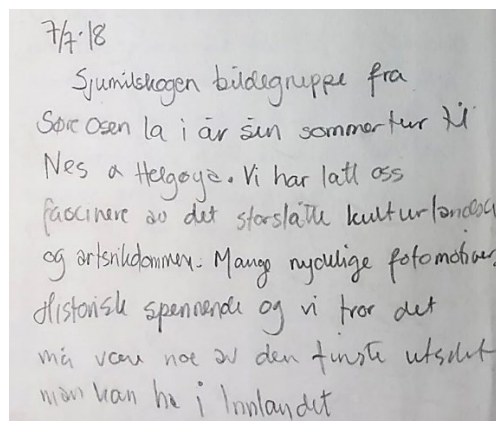 7/7-18
Sjumilskogen bildegruppe fra
Søre Osen la i år sin sommertur til
Nes & Helgøya. Vi har latt oss
fascinere av det storslåtte kulturlandska
og artsrikdommen. Mange nydelige fotomotiver.
Historisk spennende og vi tror det
må være noe av den finste utsikt
man kan ha i Innlandet